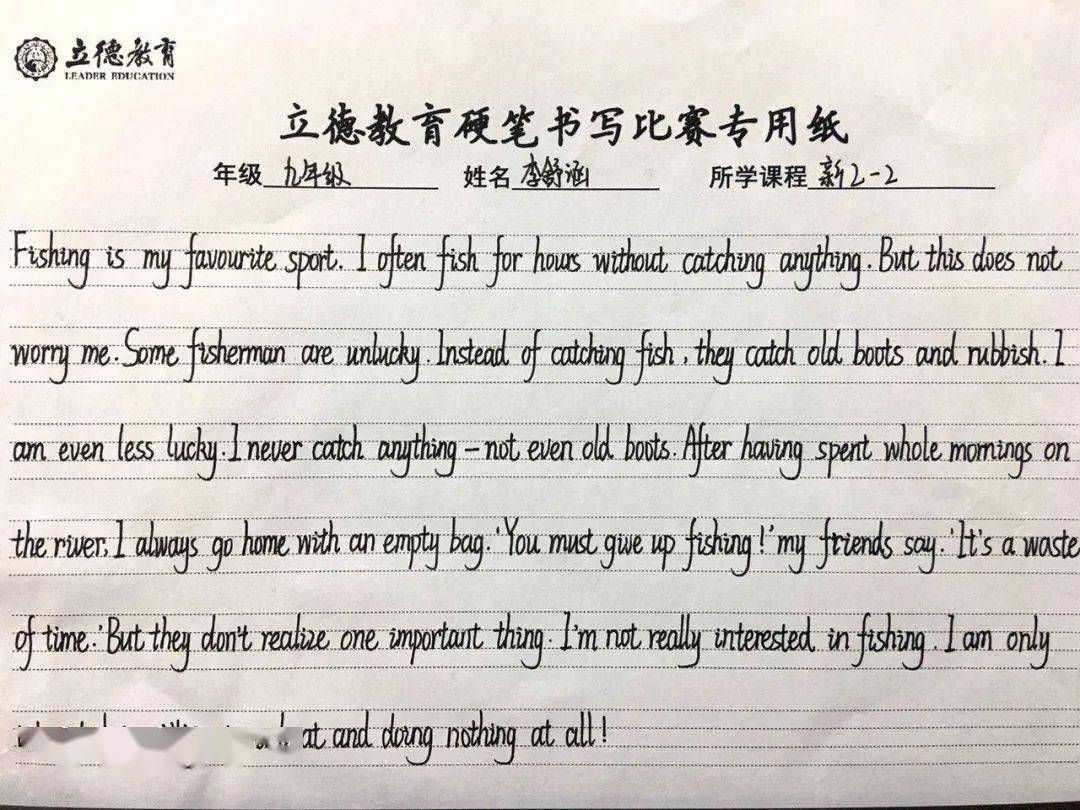 立德教育
LEADER EDUCATION
立德教育硬笔书写比赛专用纸
年级 九年级 姓名 李舒涵 所学课程 新2-2
Fishing is my favourite sport. I often fish for hours without catching anything. But this does not
worry me. Some fisherman are unlucky. Instead of catching fish, they catch old boots and rubbish. I
am even less lucky. I never catch anything – not even old boots. After having spent whole mornings on
the river, I always go home with an empty bag. 'You must give up fishing!' my friends say. 'It's a waste
of time.' But they don't realize one important thing. I'm not really interested in fishing. I am only
and doing nothing at all!